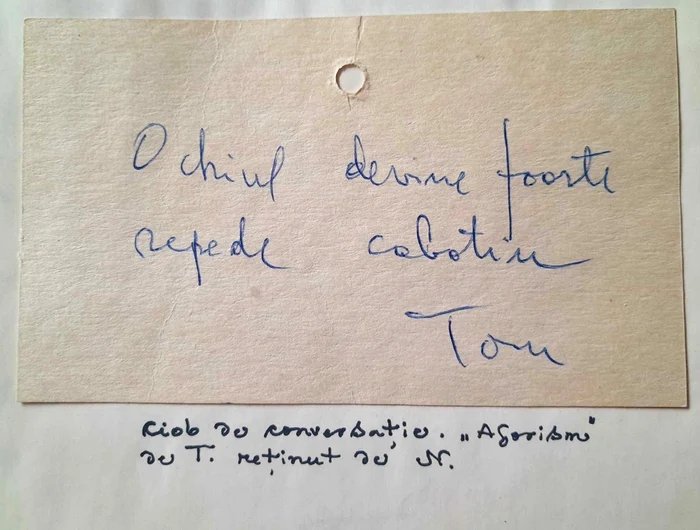 Ochiul devine foarte
repede cabotin
Tom
Ciob de conversație. „Aforism"
de T. reținut de N.